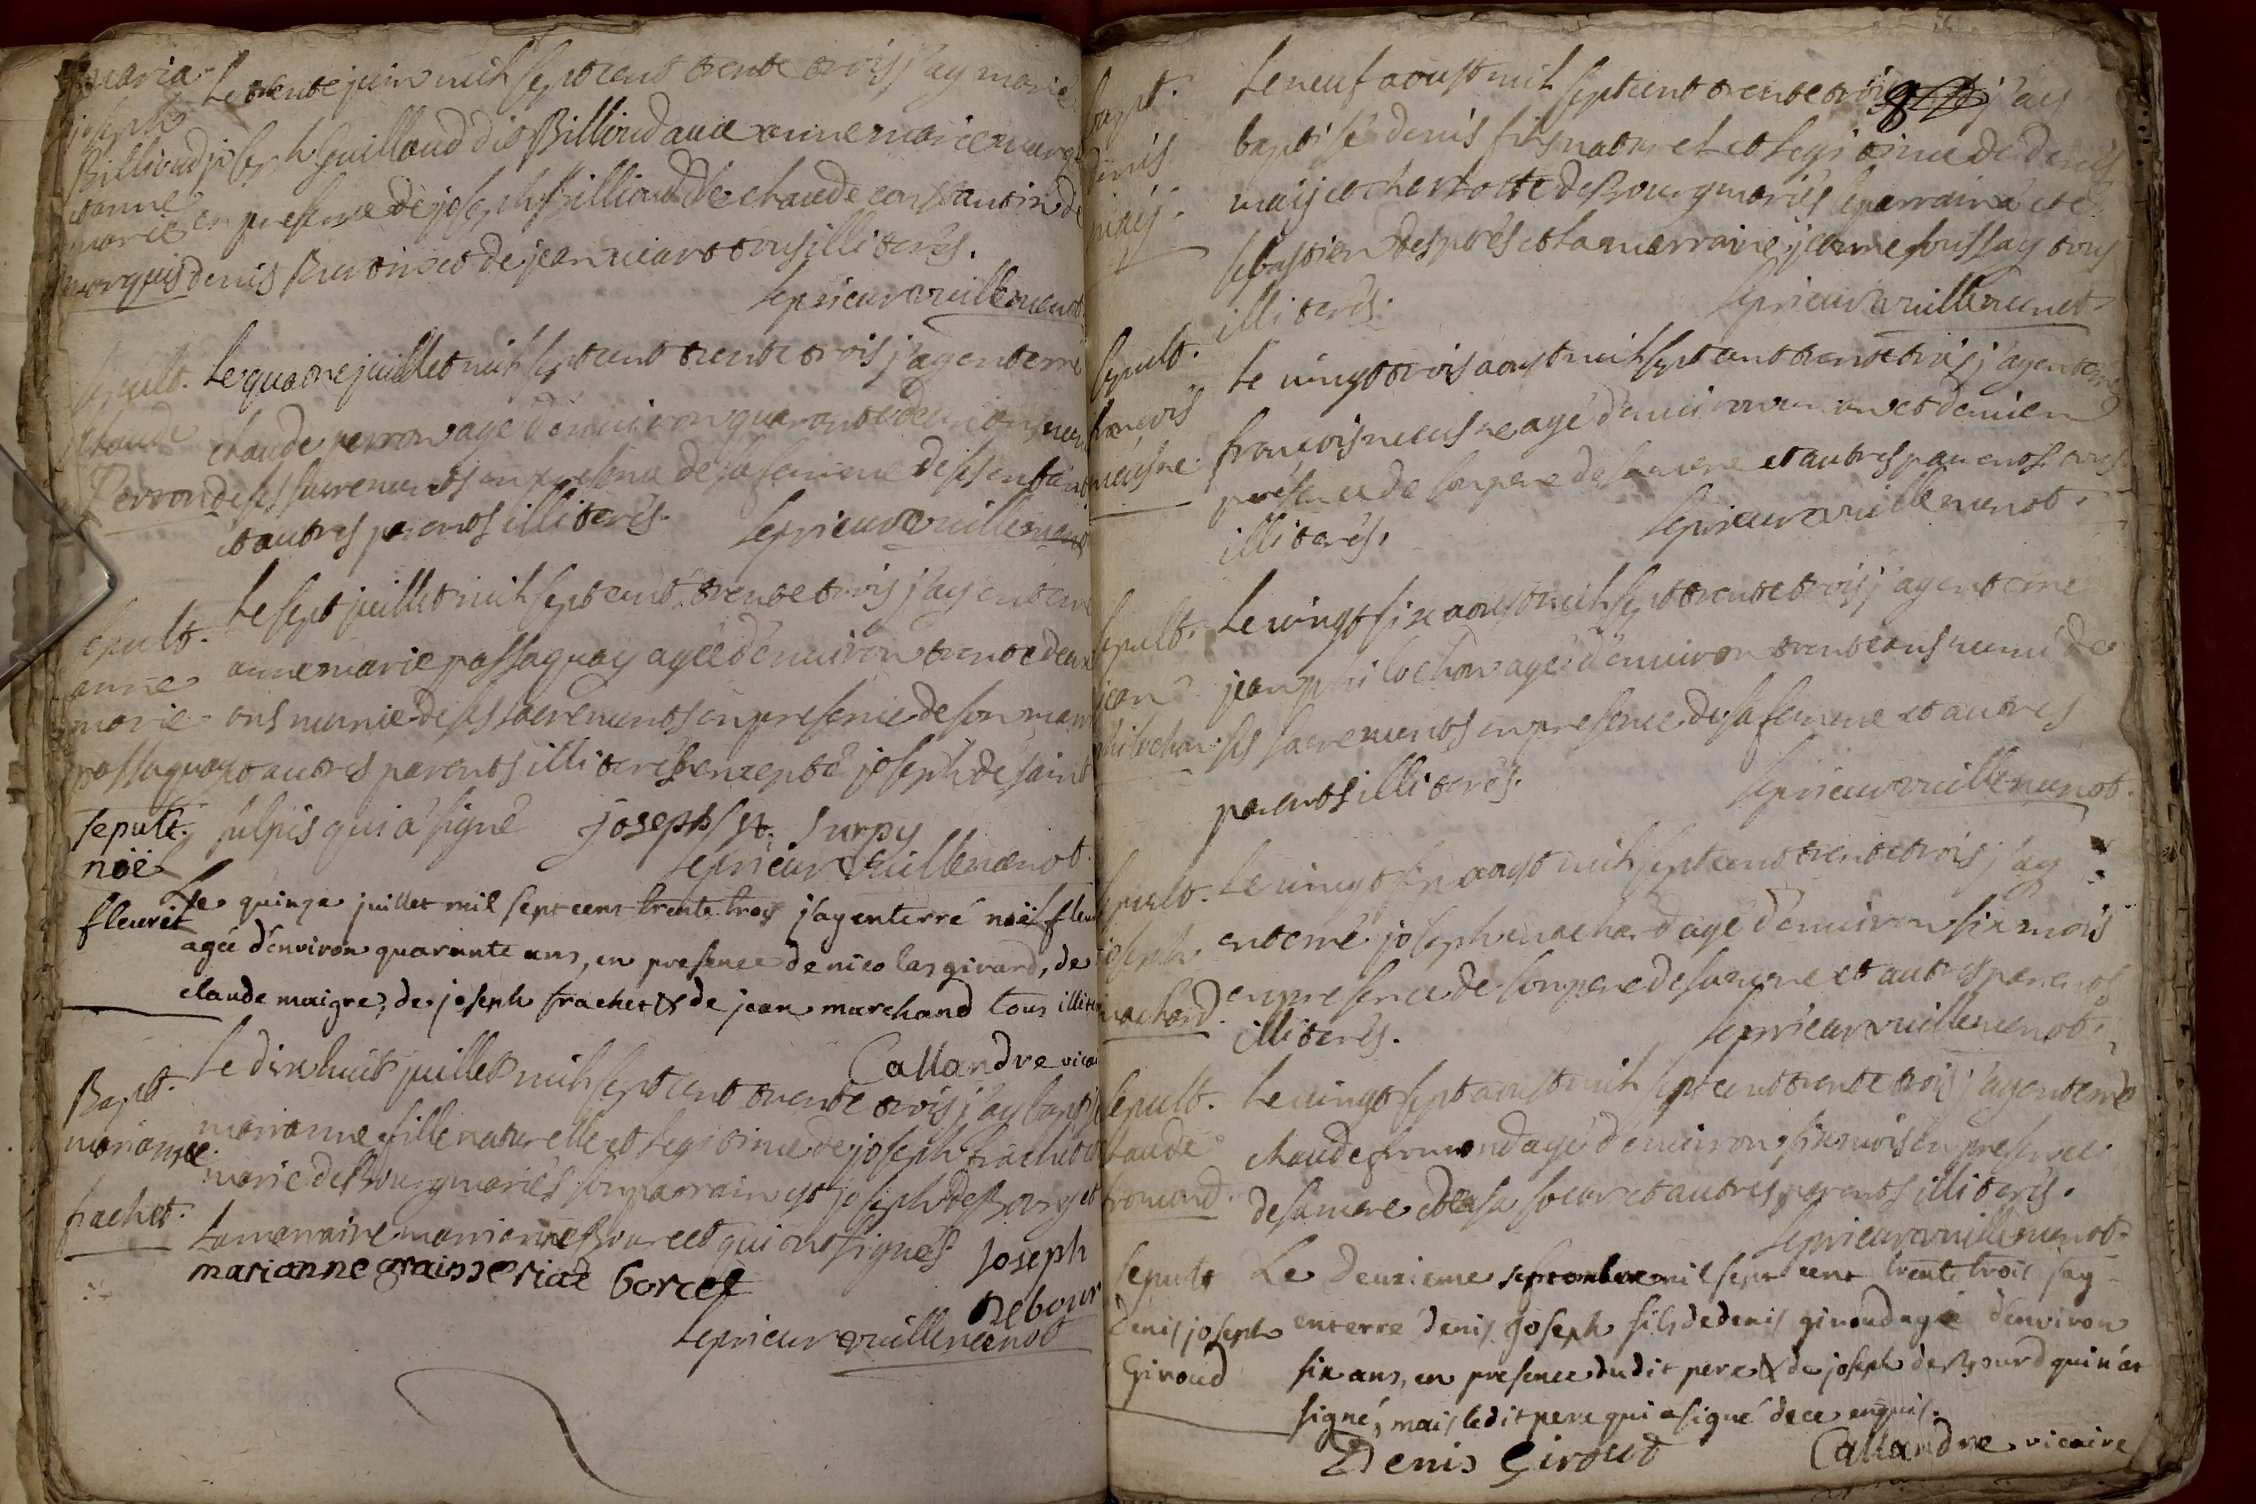 maria
joseph
Billioud
et anne
marie
marquis
Le trente juin mil sept cent trente trois j'ay marié
joseph Guilloud dit Billioud avec anne marie marquis
en presence de joseph Billioud de claude constantin de
denis Burtin et de jean viart tous illiterés.
le prieur vuillemenot
sepult.
claude
Perron
Le quatre juillet mil sept cent trente trois j'ay enterré
claude perron agé d'environ quarante deux ans muni
de ses sacrements en presence de sa femme de ses enfans
et autres parents illiterés.
le prieur vuillemenot
sepult.
anne
marie
passaquay
Le sept juillet mil sept cent trente trois j'ay enterré
anne marie passaquay agée d'environ trente deux
ans munie de ses sacrements en presence de son mary
et autres parents illiterés excepté joseph de saint
sulpis qui a signé joseph st. surpy
le prieur vuillemenot
sepult.
noë
fleuret
Le quinze juillet mil sept cent trente trois j'ay enterré noë fleu
agée d'environ quarante ans, en presence de nicolas girard, de
claude maigre, de joseph frachet & de jean marchand tous illite
Callandre vicai
Bapt.
marianne
frachet.
Le dix huit juillet mil sept cent trente trois j'ay baptisé
marianne fille naturelle et legitime de joseph frachet et
marie de Bourg mariés son parrain est joseph de Bourg et
la marraine marianne Bourcet qui ont signés. Joseph
marianne grainseriat borcet
Debour
le prieur vuillemenot
bapt.
denis
maij.
Le neuf aoust mil sept cent trente trois j'ay
baptisé denis fils naturel et legitime de denis
maij et charlotte de Bourg mariés le parrain a eté
sebastien després et la marraine jeanne soussay tous
illiterés.
le prieur vuillemenot
sepult.
françois
meusne
Le vingt trois aoust mil sept cent trente trois j'ay enterré
françois meusne agé d'environ un an et demi en
présence de son pere de sa mere et autres parents tous
illiterés.
le prieur vuillemenot.
sepult.
jean
philochon.
Le vingt six aoust mil sept trente trois j'ay enterré
jean philochon agé d'environ trente ans muni de
ses sacrements en presence de sa femme et autres
parents illiterés.
le prieur vuillemenot.
sepult.
joseph
machard.
Le vingt six aoust mil sept cent trente trois j'ay
enterré joseph machard agé d'environ six mois
en presence de son pere de sa mere et autres parents
illiterés.
le prieur vuillemenot.
sepult.
claude
fromond.
Le vingt sept aoust mil sept cent trente trois j'ay enterré
claude fromond agé d'environ six mois en presence
de sa mere et de sa soeur et autres parents illiterés.
le prieur vuillemenot
sepult
denis joseph
Giroud
Le deuxieme septembre mil sept cent trente trois j'ay
enterré denis Joseph fils de denis giroud agé d'environ
six ans, en presence dudit pere & de joseph de Bourd qui n'at
signé, mais ledit pere qui a signé de ce enquis.
Denis Giroud
Callandre vicaire